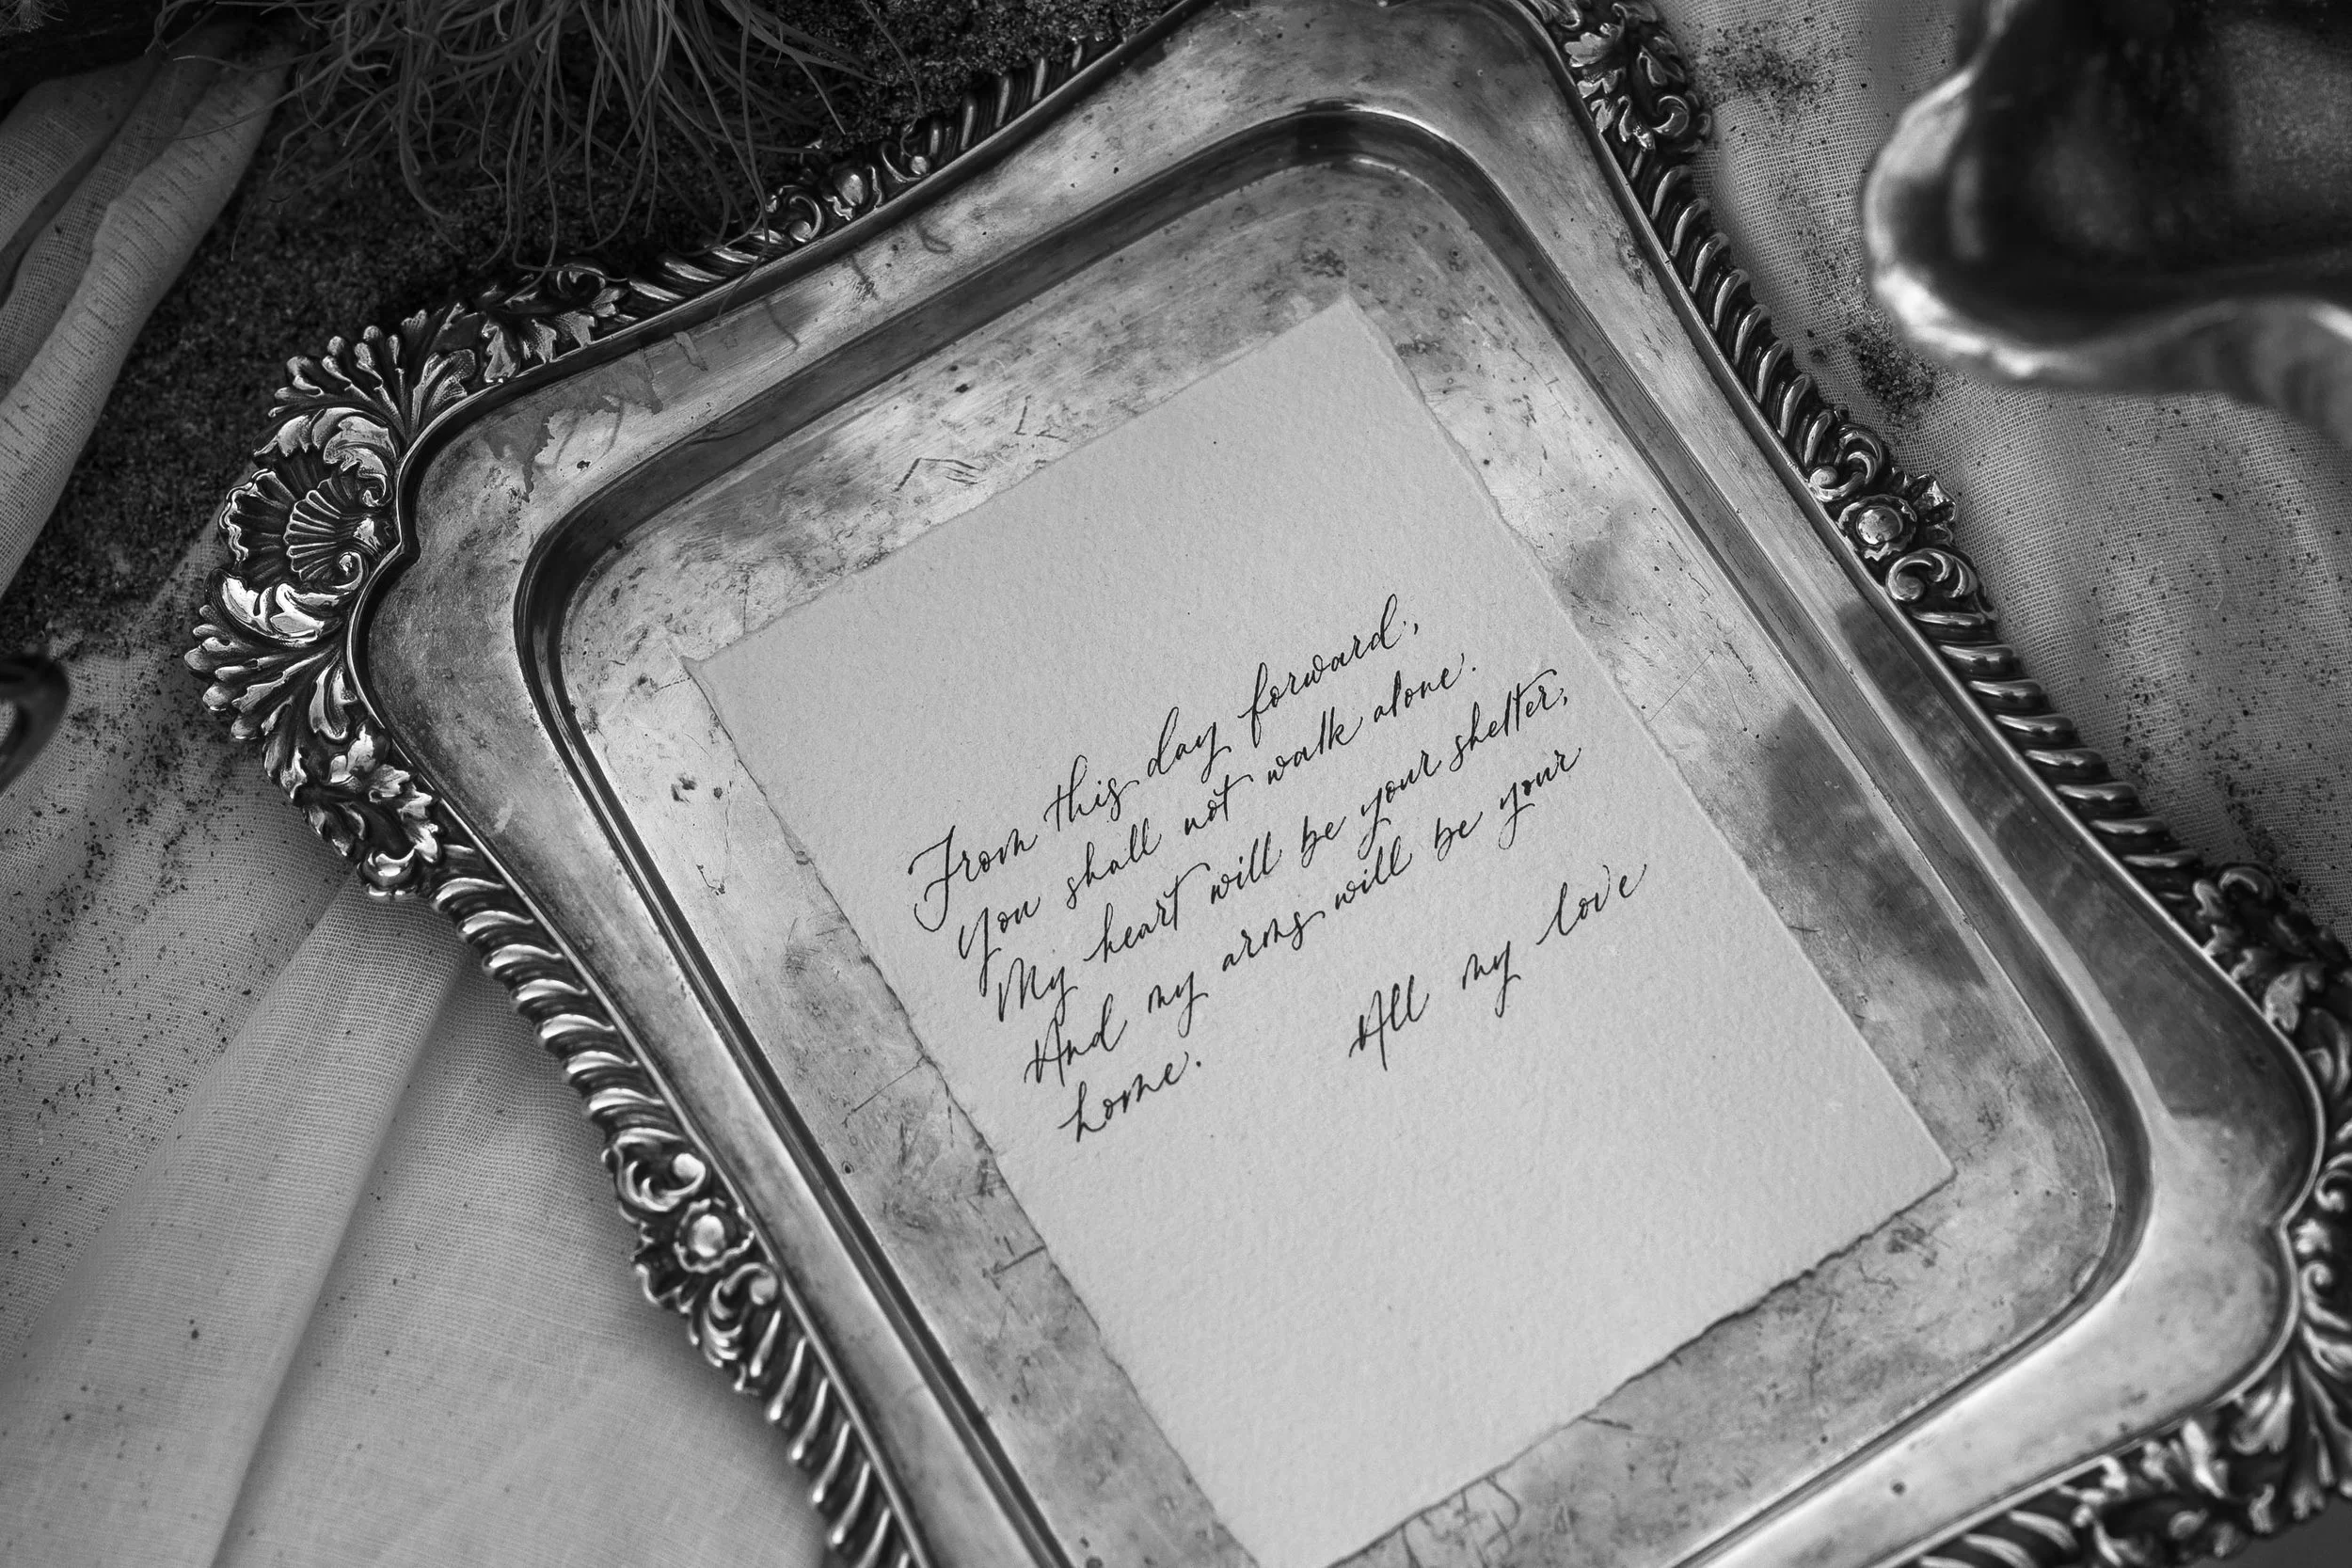 From this day forward,
you shall not walk alone.
My heart will be your shelter,
And my arms will be your
home.
All my love